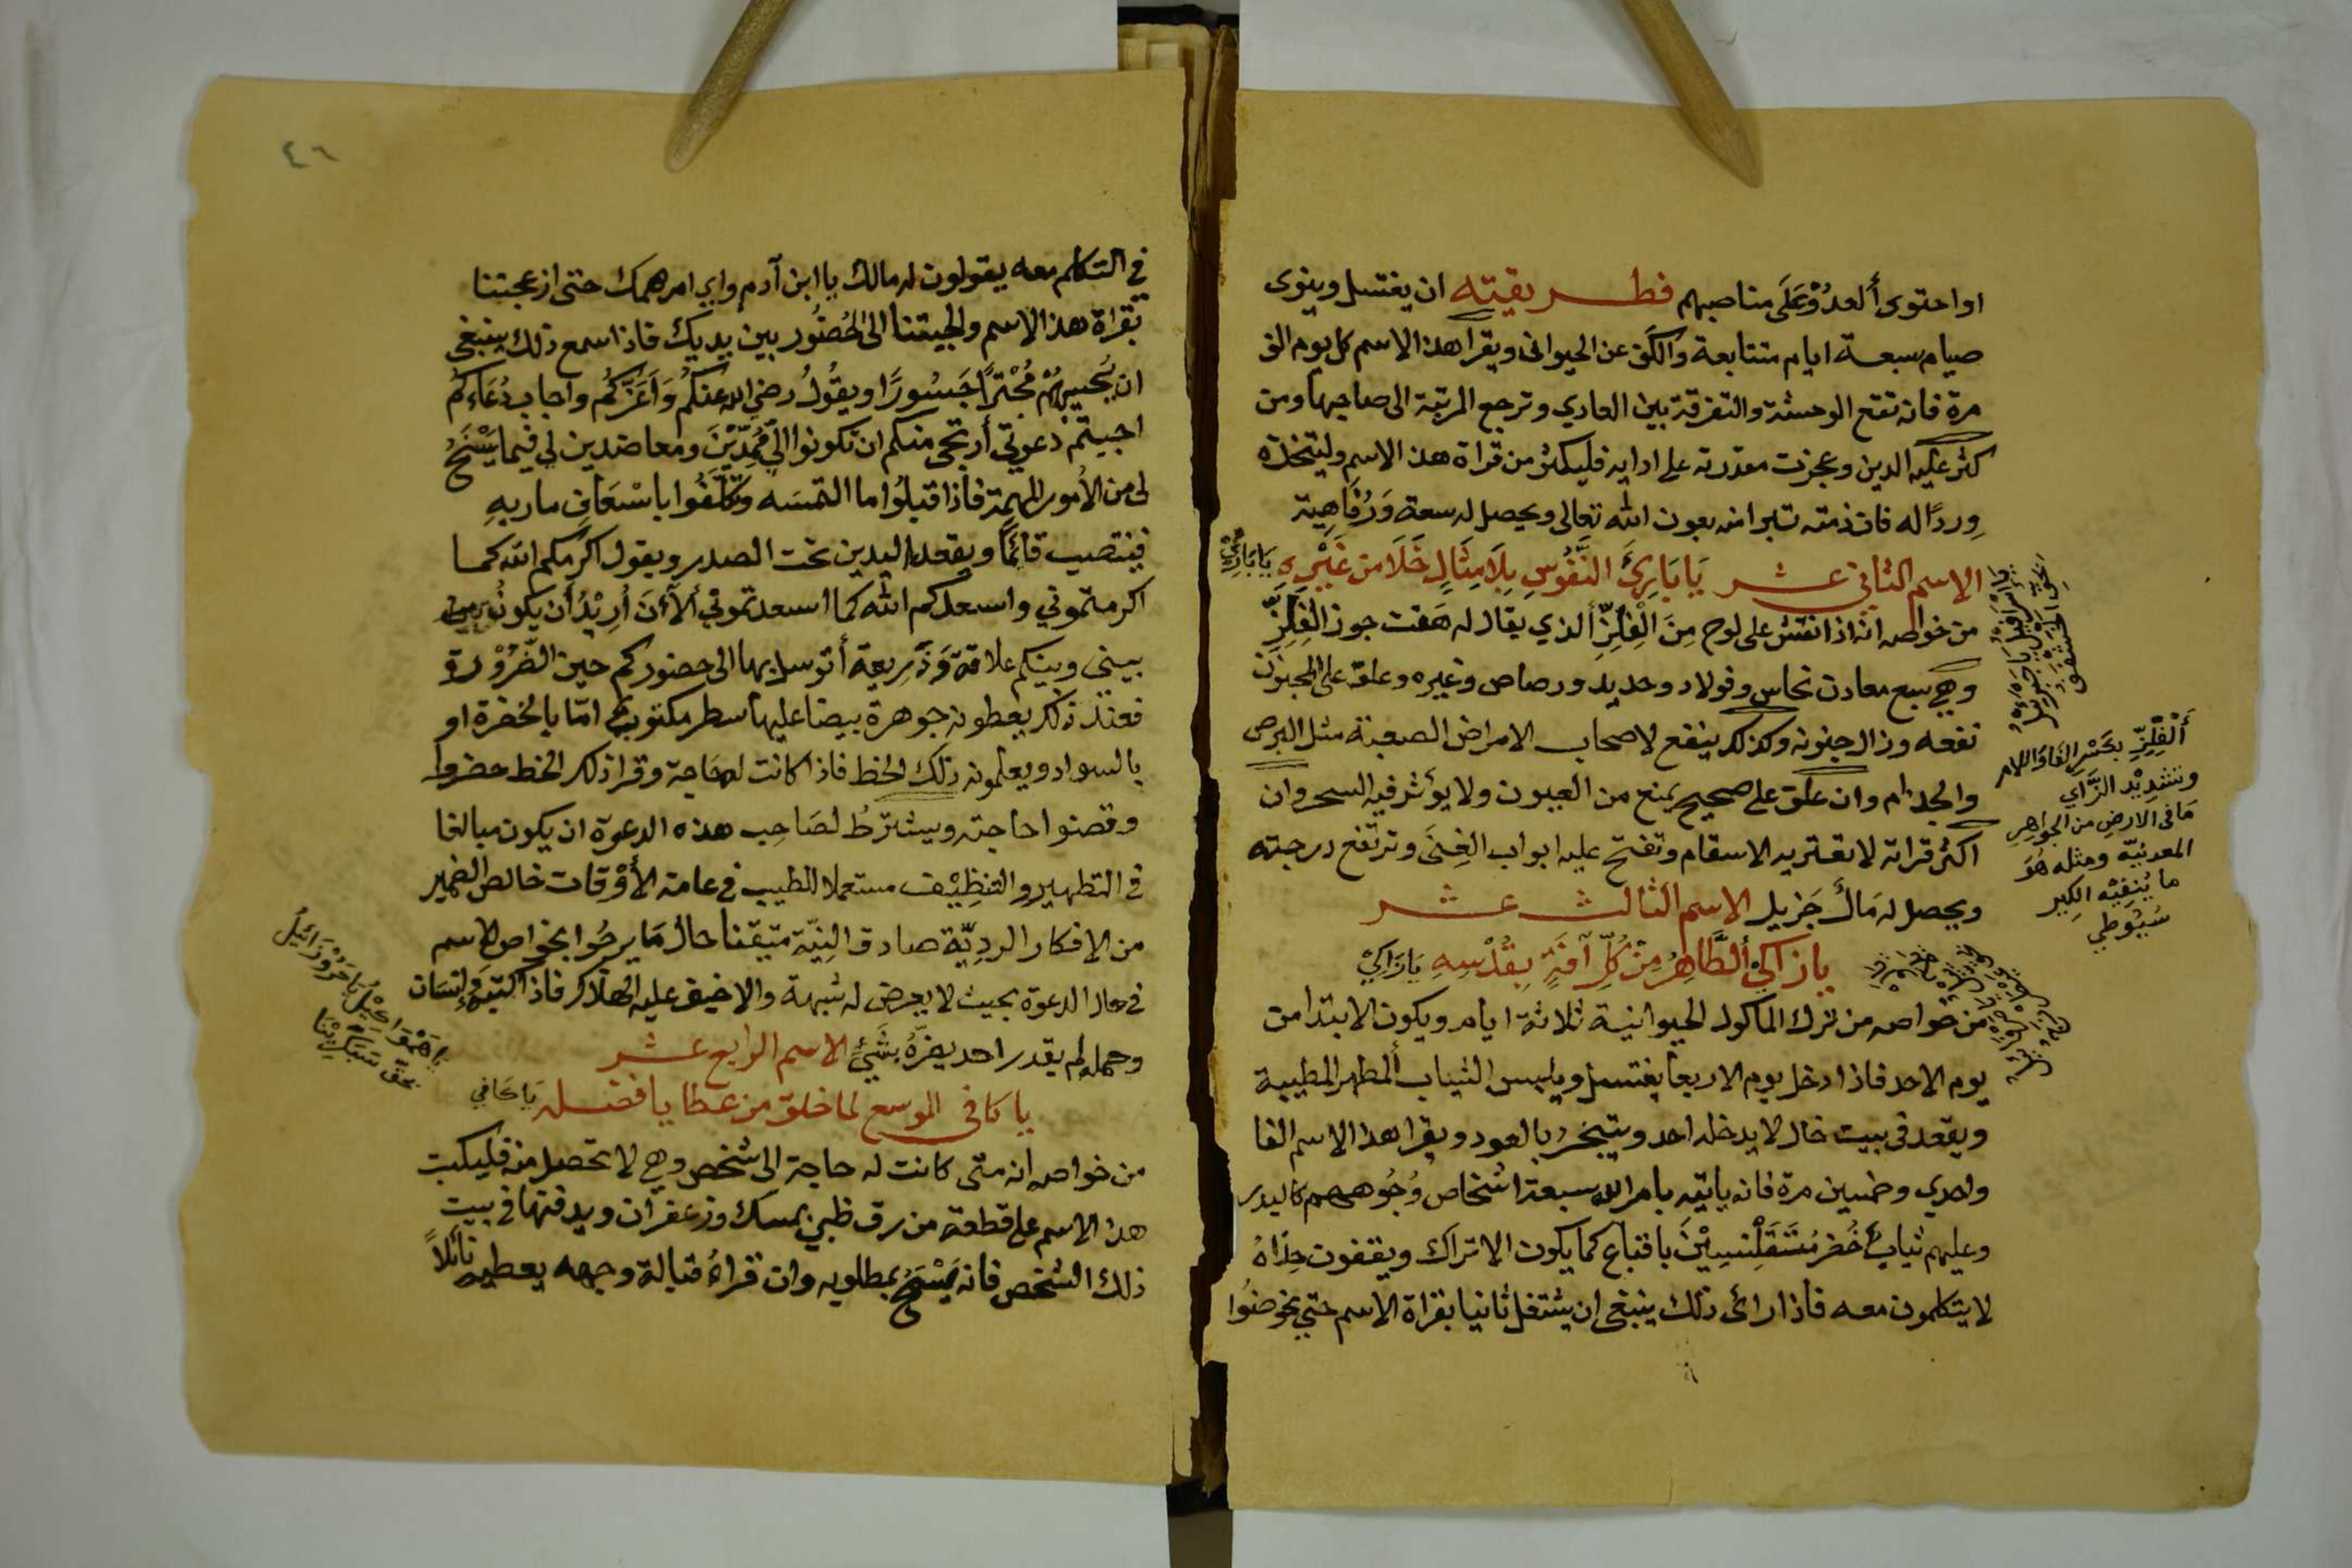 او احتوى ألعدُوّ عَلَى مناصبهم فطريقته ان يغتسل وينوى
صيام سبعة ايام متتابعة والكَف عن الحيوانى ويقرا هذا الاسم كل يوم الف
مرة فانه تقع الوحشة والتفرقة بين العادي وترجع المرتبة الى صاحبها ومن
كثر عليه الدين وعجزت مقدرته على ادايه فليكثر من قراة هذا الاسم وليتخذه
وِردًا له فان ذمته تبرا منه بعون الله تعالى ويحصل له سعة وَرُفَاهِية
الاسم الثاني عشر يَا بَارِئَ النُّفُوسِ بِلَا مِثَالٍ خَلَا مِن غَيْرِهِ يَا بَارِئُ
من خواصه انه اذا نقش على لوح مِنَ الْفِلِزِّ ألذي يقال له هَفت جوز الفِلِزِّ
وهي سبع معادن نحاس وفولاد وحديد ورصاص وغيره وعلق على المجنون
نفعه وزال جنونه وكذلك ينفع لاصحاب الامراض الصعبة مثل البرص
والجذام وان علق على صحيح يمنع من العيون ولا يؤثر فيه السحر وان
اكثر قراته لا تعتريه الاسقام وتفتح عليه ابواب الغِنَى وترتفع درجته
ويحصل له مَالٌ جَزيل الاسم الثالث عشر
يا زاكيُ ألطَّاهِرُ مِنْ كُلِّ آفَةٍ بِقُدْسِهِ يَا زَاكِيُ
من خواصه من ترك الماكول الحيوانية ثلاثة ايام ويكون الابتدا من
يوم الاحد فاذا دخل يوم الاربعا يغتسل ويلبس الثياب ألمطهر المطيبة
ويقعد فى بيت خال لا يدخله احد ويتبخر بالعود ويقرا هذا الاسم الفا
واحدي وخمسين مرة فانه ياتيه بامر الله سبعة اشخاص وُجُوههم كالبدر
وعليهم ثيابٌ خُضر مُتَقَلْنسِيْنَ باقباع كما يكون الاتراك ويقفون حِذاهُ
لا يتكلمون معه فاذا راى ذلك ينبغى ان يشتغل ثانيا بقراة الاسم حتي يخوضُوا
أَلْفِلِزِّ بكَسْرِ الفَا وَاللام
وتشدِيْد الزَّاي
مَا فى الارضِ من الجواهِرِ
المعدنيّه ومثله هُوَ
ما يُنفِيْه الكِير
سُيُوطي
٤٦
في التكلم معه يقولون له مالك يا ابن آدم واي امر همك حتى ازعجتنا
بقراة هذا الاسم والجيتنا الى الحُضُور بين يديك فاذا سمع ذلك ينبغى
ان يُجيبَهُمْ مُجْتَرًا جَسُورًا ويقُولُ رضي الله عنكُم وَأعَزَّكُم واجاب دُعَاءكُم
اجبتم دعوتي أرتجى منكم ان تكونوا الى مُمِدِّيْنَ ومعاضدين لي فيما يَسْنَحُ
لى من الأمور المهمة فاذا قبلُوا ما التمسَه وتكلَّفُوا باسْعَافِ ماربهِ
فينتصب قائمًا ويقعد اليدين تحت الصدر ويقول اكرمكم الله كما
اكرمتموني واسعدكم الله كما اسعدتموني ألآنَ أُرِيْدُ أن يكونُ
بيني وبينكم علاقة وَذَريعة أتوسل بها الى حضوركم حين الضَّرُوْرة
فعند ذلك يعطونه جوهرة بيضا عليها سطر مكتوب امّا بالخضرة او
بالسواد ويعلمونه ذلك الخط فاذا كانت له حَاجة وقرا ذلك الخط حضروا
وقضوا حاجته ويشترطُ لصَاحِب هذه الدعوة ان يكون مبالغا
في التطهير والتنظِيْف مستعملا للطيب في عامة الأوْقات خالص الضمير
من الافكار الرديّة صادق النِيّة متيقنا حال مَا يرجُوا بخواص الاسم
في حال الدعوة بحيث لا يعرض له شبهة والا خيف عليه الهلاك فاذا كتبه إنسَان
وحمله لم يقدر احد يضرُّهُ بشَيْءٍ الاسم الرابع عشر
يا كافى الموسع لما خلق من عطايا فضله يَا كَافي
من خواصه انه متى كانت له حاجة الى شخص وهي لا تحصل منه فليكتب
هذا الاسم على قطعة من رق ظبي بمسك وزعفران ويدفنها في بيت
ذلك الشخص فانه يَسْمَحُ بمطلوبه وان قراهُ قبالة وجهه يعطيه نائلاً